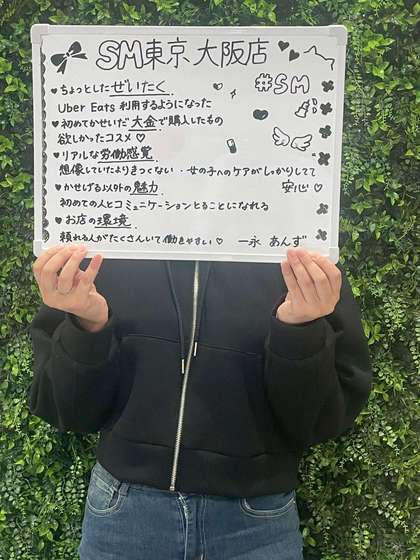 SM東京 大阪店
#SM
♥ちょっとしたぜいたく
Uber Eats 利用するようになった
♥初めてかせいだ大金で購入したもの
欲しかったコスメ♡
♥リアルな労働感覚
想像していたよりきつくない・女の子へのケアがしっかりしてて
安心♡
♥かせげる以外の魅力
初めての人とコミュニケーションとることになれる
♥お店の環境
頼れる人がたくさんいて働きやすい♡
一永 あんず